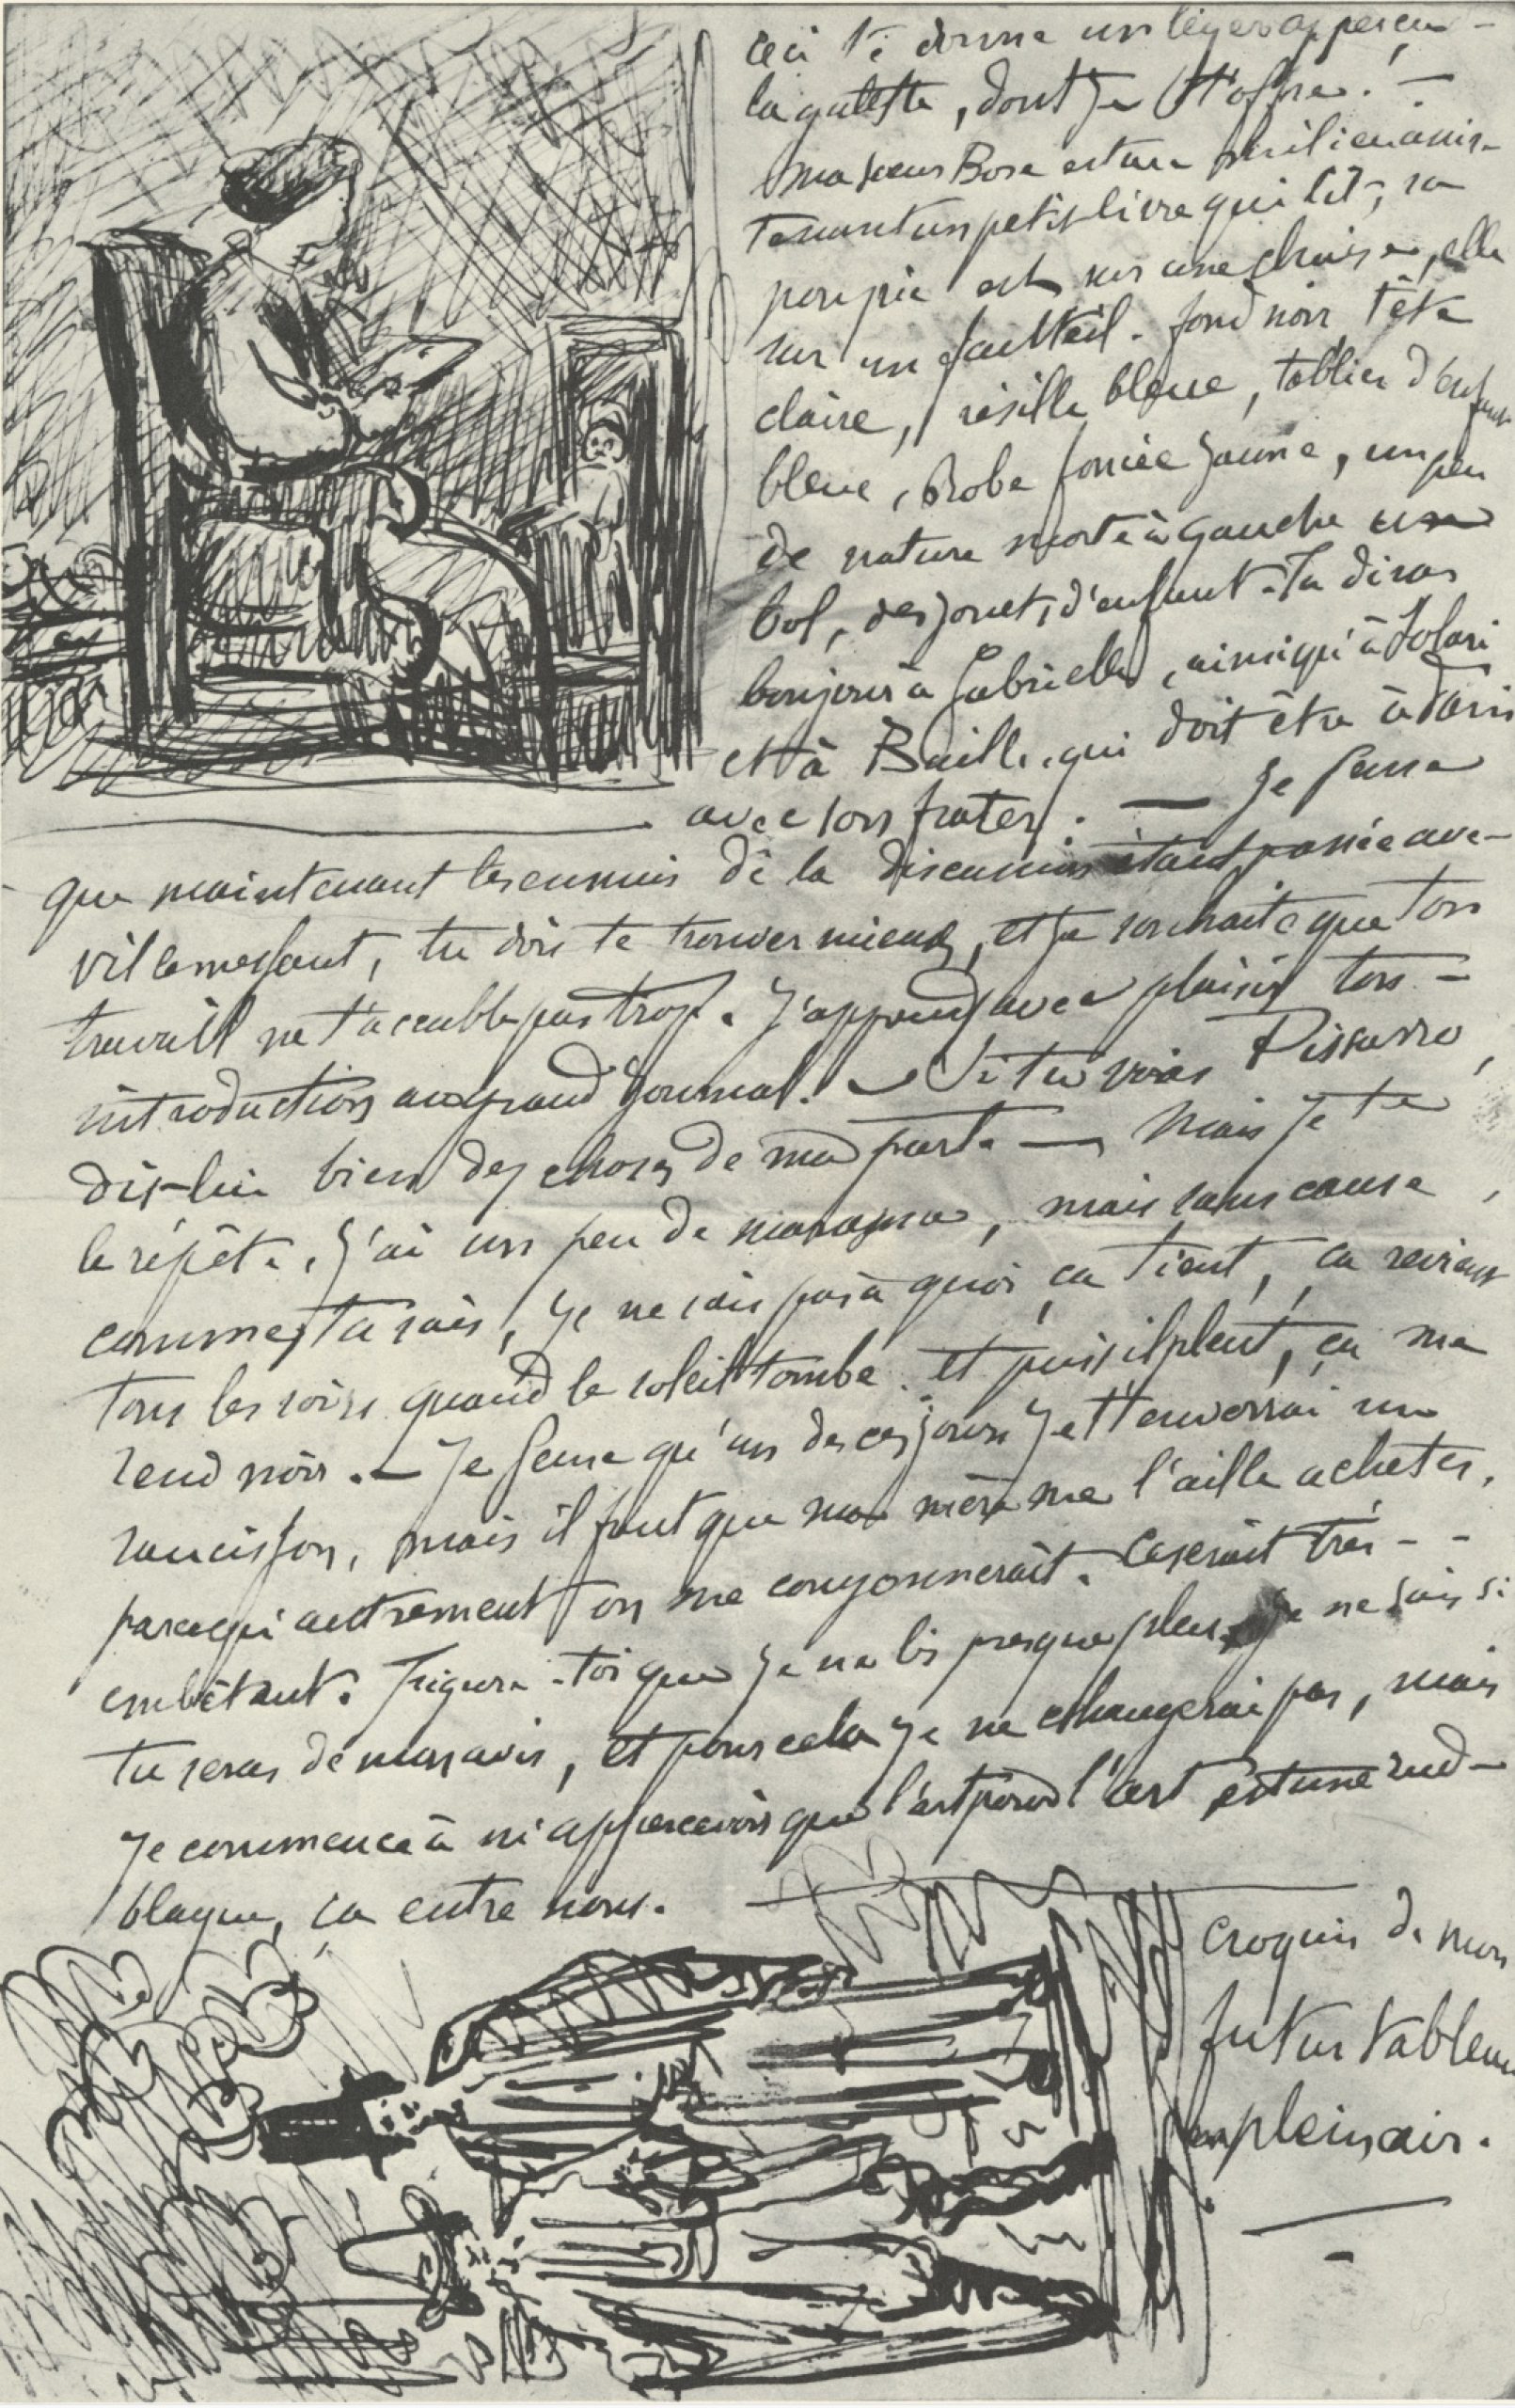 Ceci te donne un léger apperçu -
la galette, dont je t'offre. -
Ma sœur Rose est au milieu assis-
tenant un petit livre qui lit, sa
poupée est sur une chaise, elle
sur un fautteil. fond noir tête
claire, résille bleue, tablier d'enfant
bleue, Robe foncée jaune, un peu
de nature morte à gauche un
bol, des jouets d'enfant. Tu diras
bonjour à Gabrielle, ainsi qu'à Solari
et à Baille, qui doit être à Paris
avec son frater. — Je pense
que maintenant les ennuis de la discussion étant passée ave-
Villemessant, tu dois te trouver mieux, et je souhaite que ton
travaill ne t'accable pas trop. J'apprends avec plaisir ton -
introduction au grand journal. — Si tu vois Pissarro,
dis-lui bien des choses de ma part. — Mais je te
le répète, j'ai un peu de marasme, mais sans cause,
comme tu sais, je ne sais pas à quoi ça tient, ça revient
tous les soirs quand le soleil tombe, et puis il pleut, ça me
rend noir. — Je pense qu'un de ces jours je t'enverrai un
saucisson, mais il faut que ma mère me l'aille acheter,
parcequ'autrement on me couyonnerait. Ca serait très - -
embêtant. Figure-toi que je ne lis presque plus. Je ne sais si
tu seras de mon avis, et pour cela je ne changerai pas, mais
je commence à m'appercevoir que l'art pour l'art est une rud-
blague, ça entre nous.
Croquis de mon
futur tableau
en plein air.